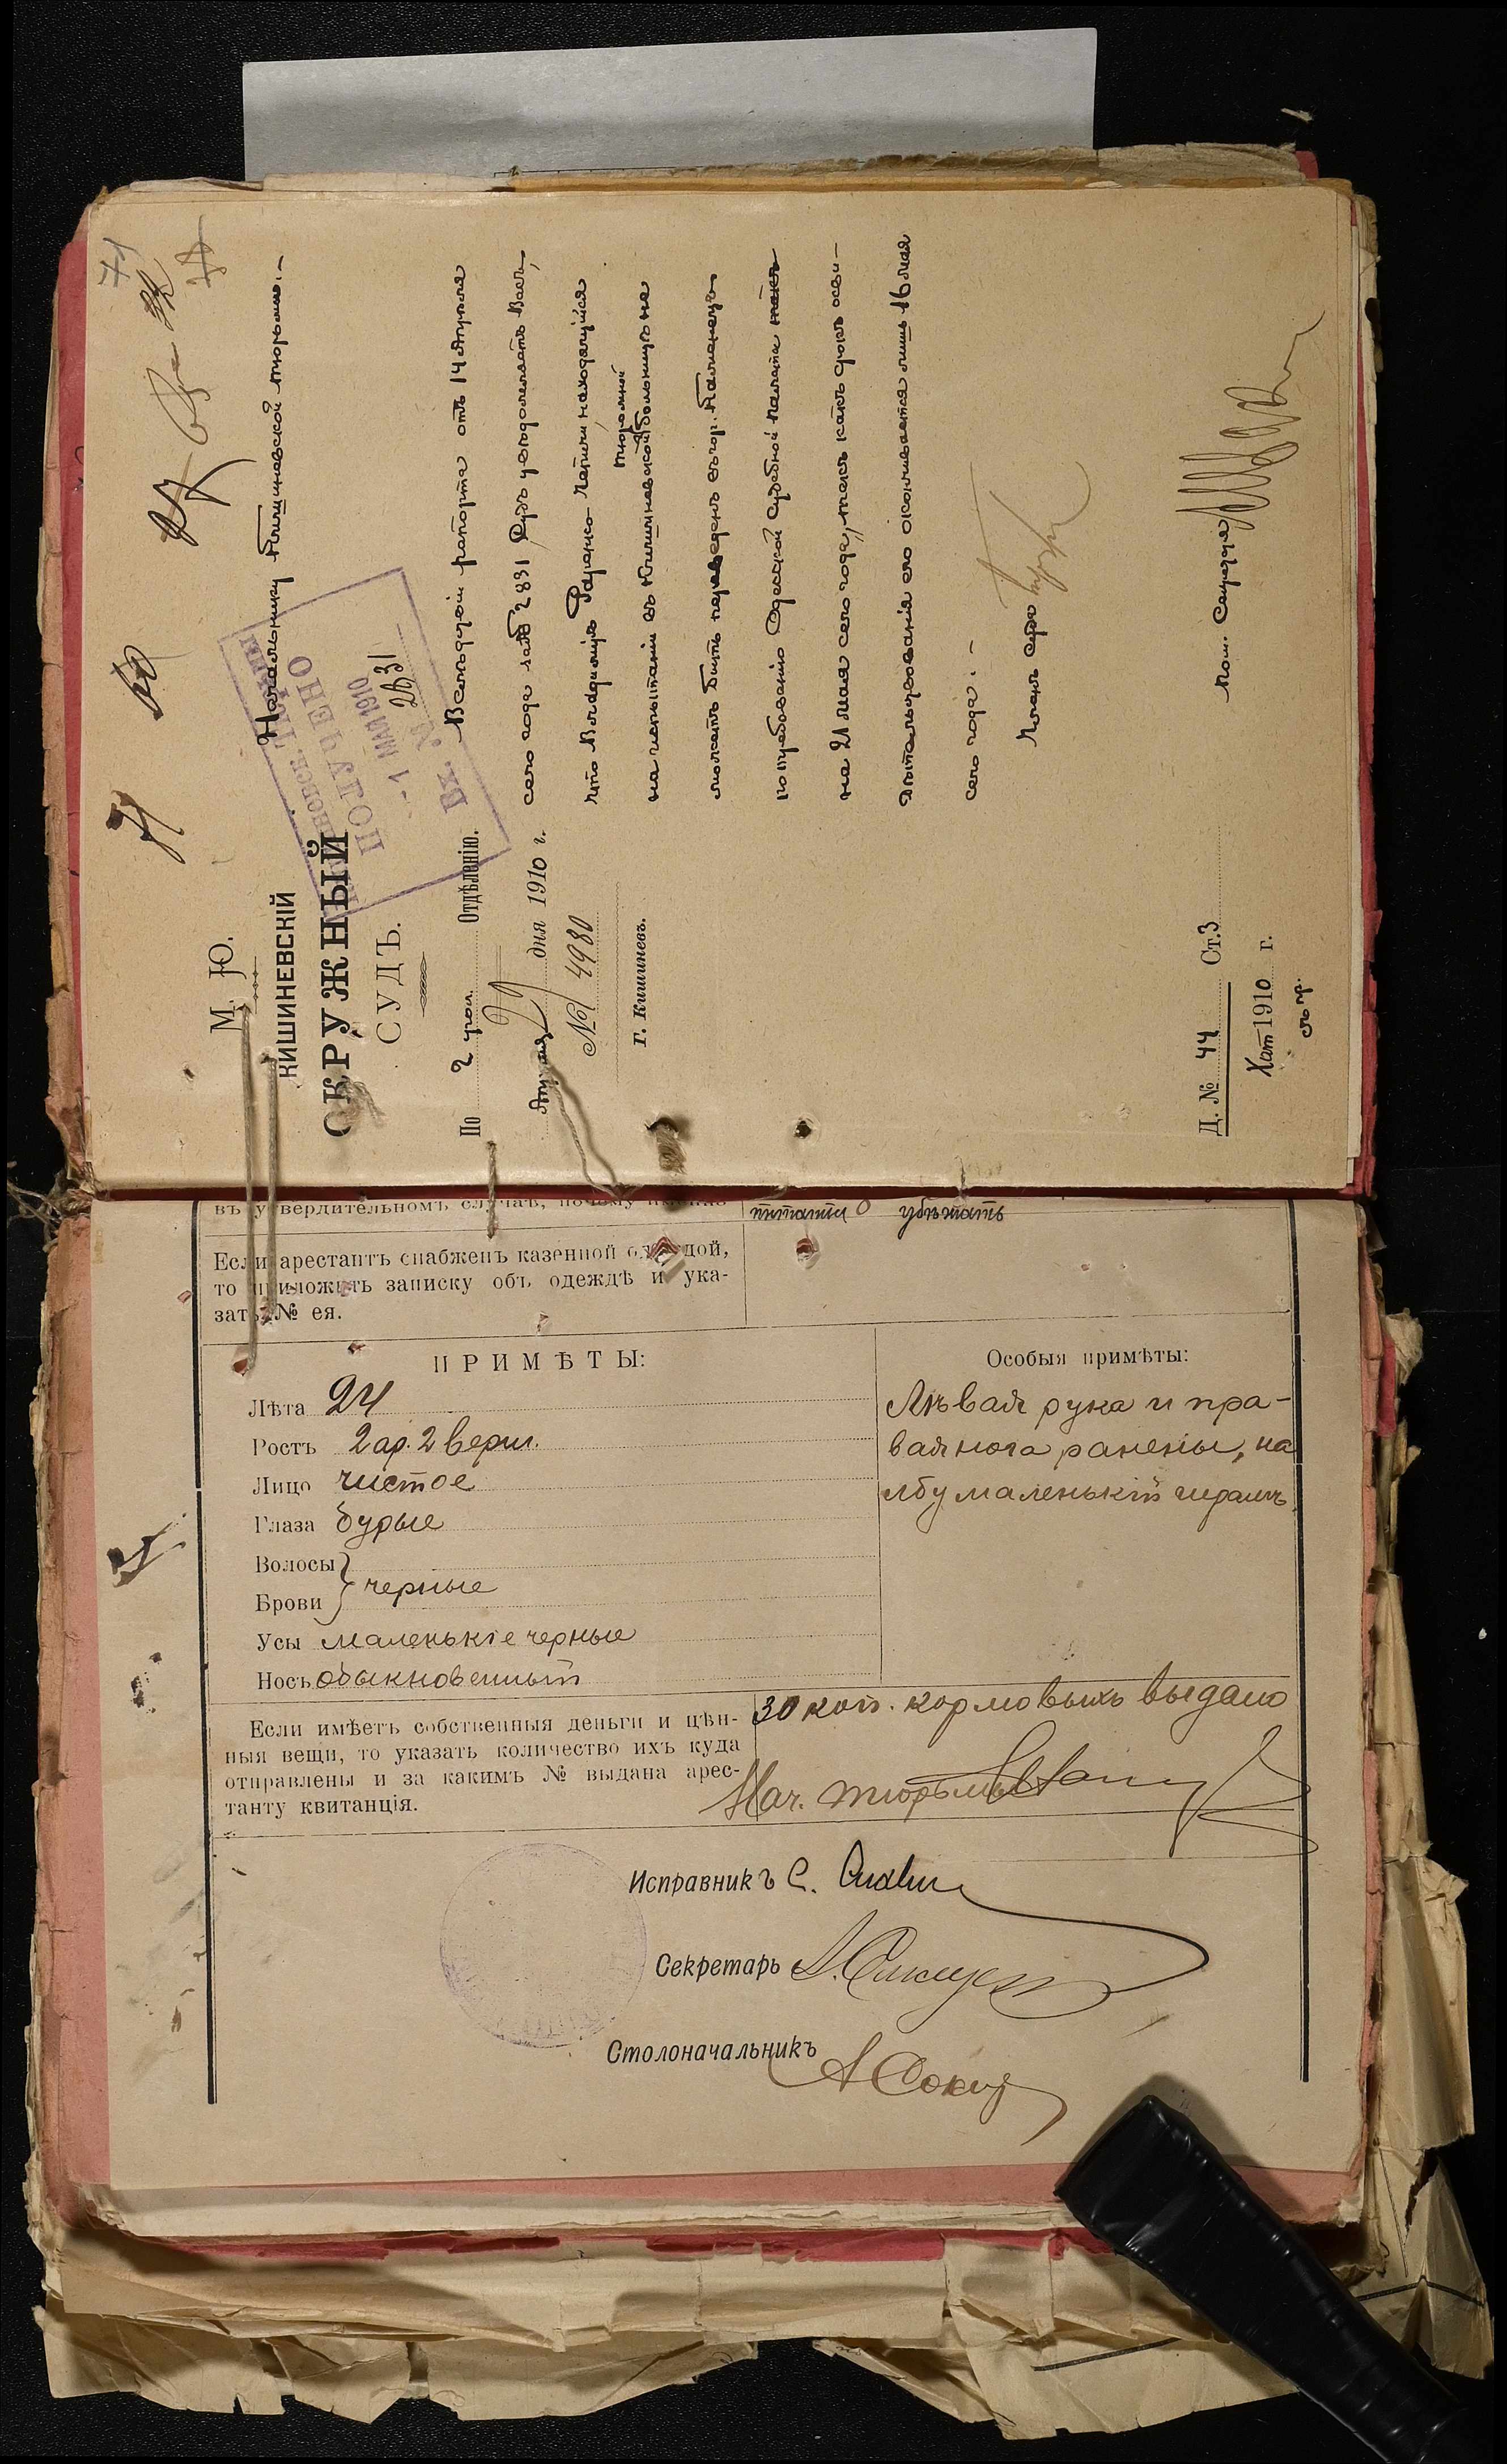 71
М. Ю.
КИШИНЕВСКІЙ
ОКРУЖНЫЙ
СУДЪ.
По 2 угол. Отдѣленію.
Апрѣля 29 дня 1910 г.
№ 4980
Г. Кишиневъ.
ПОЛУЧЕНО
- 1 МАЯ 1910
Вх. № 2831
Начальнику Кишиневской тюрьмы.-
Вслѣдствіе рапорта отъ 14 Апрѣля
сего года за № 2831, Судъ увѣдомляетъ Васъ,
что Владиміръ находящійся
тюремной
на испытаніи въ Кишиневской больницѣ не
можетъ быть переведенъ въ гор. Каменецъ
по требованію Одесской Судебной Палаты
на 21 мая сего года, такъ какъ срокъ осви-
дѣтельствованія его оканчивается лишь 16 мая
сего года.-
Членъ суда
Пом. Секретаря
Д. № 44 Ст. 3
1910 г.
въ утвердительномъ случаѣ, почему
убѣжать
Если арестантъ снабженъ казенной одеждой,
то приложить записку объ одеждѣ и ука-
зать № ея.
ПРИМѢТЫ:
Лѣта 24
Ростъ 2 ар. 2 верш.
Лицо чистое
Глаза бурые
Волосы
Брови черные
Усы маленькіе черные
Носъ обыкновенный
Особыя примѣты:
Лѣвая рука и пра-
вая нога ранены, на
лбу маленькій шрамъ
Если имѣетъ собственныя деньги и цѣн-
ныя вещи, то указать количество ихъ куда
отправлены и за какимъ № выдана арес-
танту квитанція.
30 коп. кормовыхъ выдано
Нач. тюрьмы
Исправникъ С.
Секретарь
Столоначальникъ